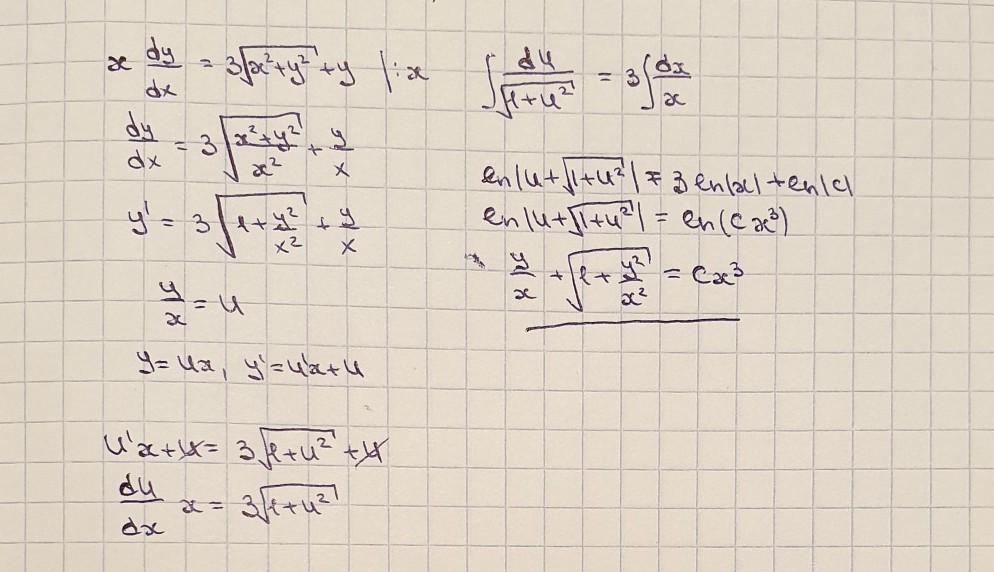 x dy/dx = 3√(x²+y²) + y |:x
dy/dx = 3√((x²+y²)/x²) + y/x
y' = 3√(1+y²/x²) + y/x
y/x = u
y = ux, y' = u'x+u
u'x+u = 3√(1+u²) + u
du/dx x = 3√(1+u²)
∫ du/√(1+u²) = 3∫ dx/x
ln|u+√(1+u²)| = 3ln|x|+ln|c|
ln|u+√(1+u²)| = ln(cx³)
y/x + √(1+y²/x²) = cx³